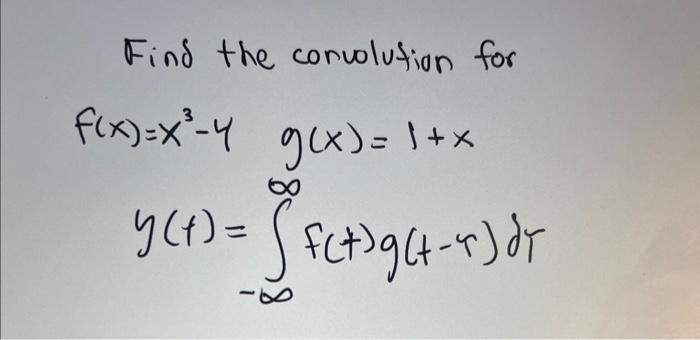 Find the convolution for
f(x)=x³-4 g(x)= 1+x
y(t)= ∫_{-∞}^{∞} f(t)g(t-τ)dτ